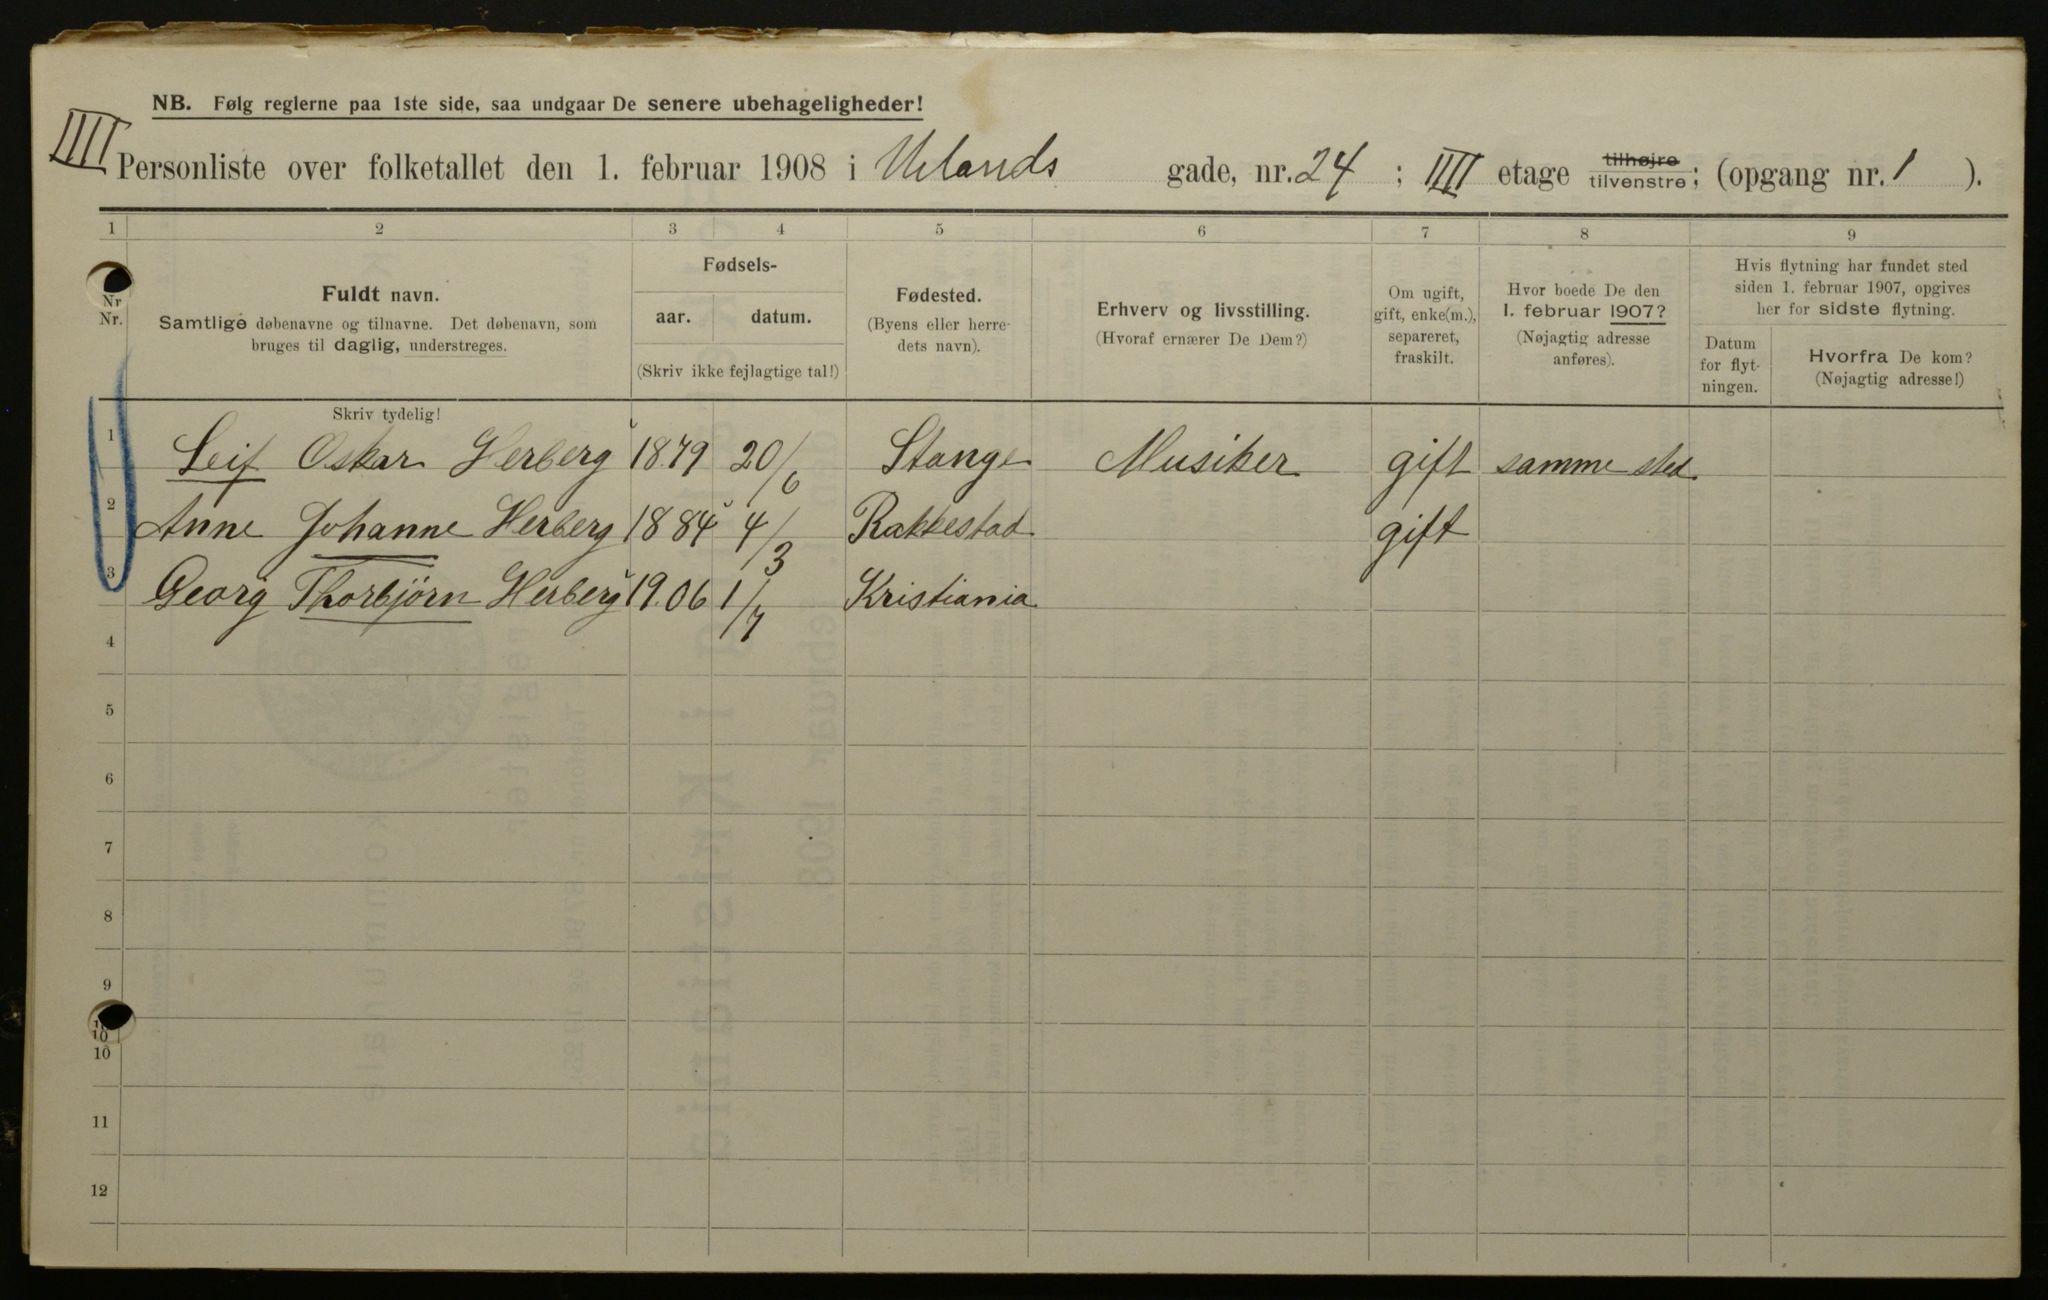 NB. Følg reglerne paa 1ste side, saa undgaar De senere ubehageligheder!
IIII
Personliste over folketallet den 1. februar 1908 i Uelands gade, nr. 24 ; IIII etage tilhøjre tilvenstre; (opgang nr. 1 ).
1 2 3 4 5 6 7 8 9
Nr
Nr.
Fuldt navn.
Samtlige døbenavne og tilnavne. Det døbenavn, som
bruges til daglig, understreges.
Skriv tydelig!
Fødsels-
aar. datum.
(Skriv ikke fejlagtige tal!)
Fødested.
(Byens eller herre-
dets navn).
Erhverv og livsstilling.
(Hvoraf ernærer De Dem?)
Om ugift,
gift, enke(m.),
separeret,
fraskilt.
Hvor boede De den
1. februar 1907?
(Nøjagtig adresse
anføres).
Hvis flytning har fundet sted
siden 1. februar 1907, opgives
her for sidste flytning.
Datum
for flyt-
ningen.
Hvorfra De kom?
(Nøjagtig adresse!)
1 Leif Oskar Herberg 1879 20/6 Stange Musiker gift samme sted
2 Anne Johanne Herberg 1884 4/3 Rakkestad gift
3 Georg Thorbjørn Herberg 1906 1/7 Kristiania
4
5
6
7
8
9
10
10
11
12